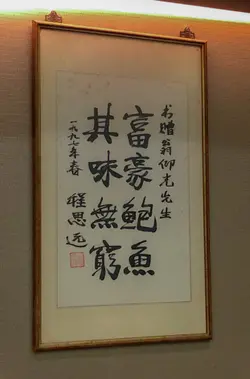 书赠翁仰光先生
富豪鲍魚
其味無窮
一九九七年春
程思远